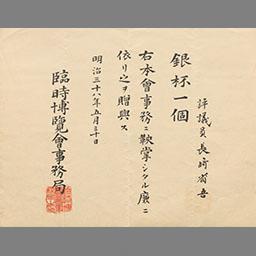 評議員 長崎省吾
銀杯一個
右本會事務ニ鞅掌シタル廉ニ
依リ之ヲ贈與ス
明治三十八年五月三十日
臨時博覽會事務局